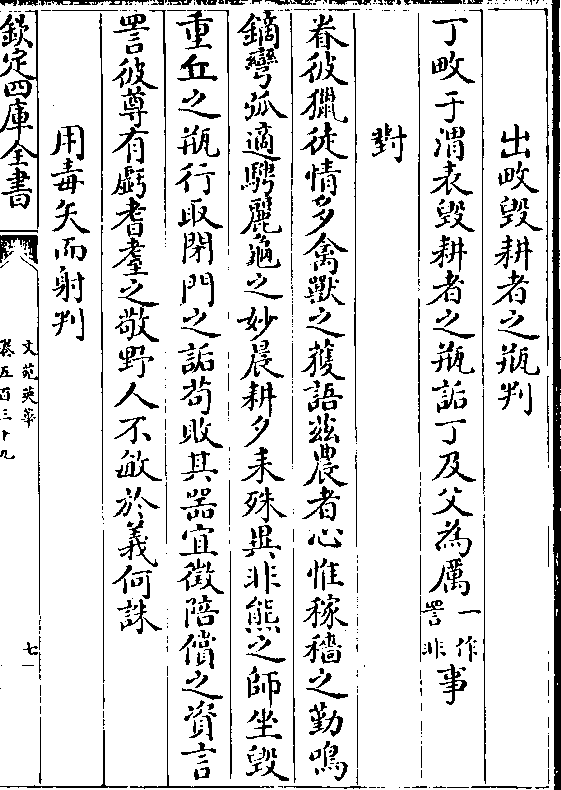 出畋毀耕者之瓶判
丁畋于渭表毀耕者之瓶詬丁及父為厲一作詈非事
對
眷彼獵徒情多禽獸之獲語兹農者心惟稼穡之勤鳴
鏑彎弧適騁麗龜之妙晨耕夕耒殊異非熊之師坐毀
重丘之瓶行取閉門之詬苟敗其器宜徵陪償之資言
詈彼尊有虧耆耋之敬野人不敏於義何誅
用毒矢而射判
欽定四庫全書
文苑英華
卷五百三十九
七